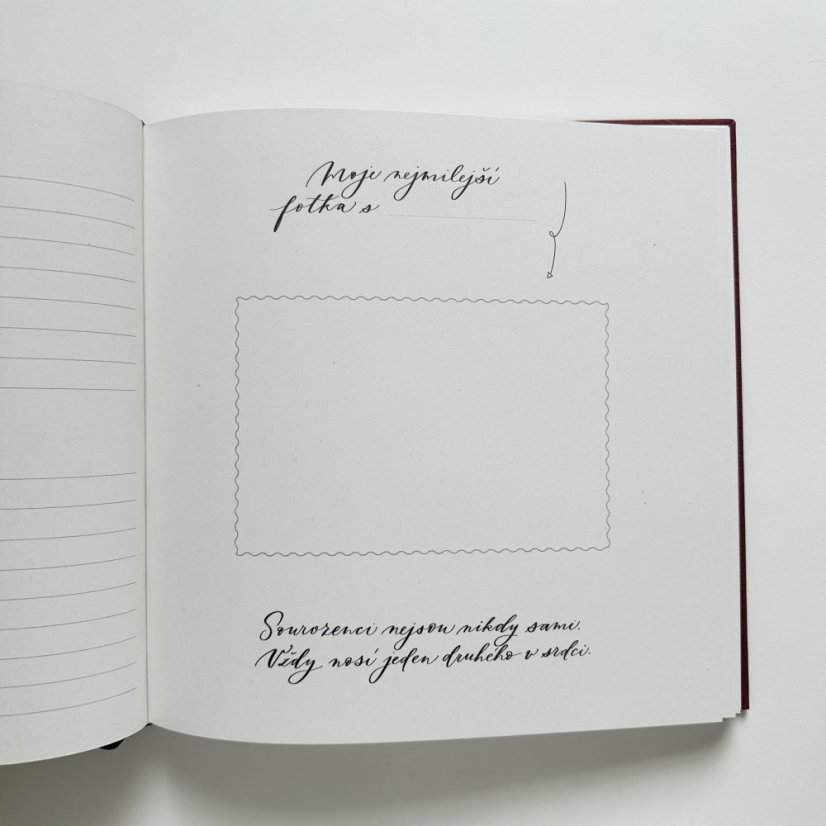 Moje nejmilejší
fotka s
Sourozenci nejsou nikdy sami.
Vždy nosí jeden druhého v srdci.